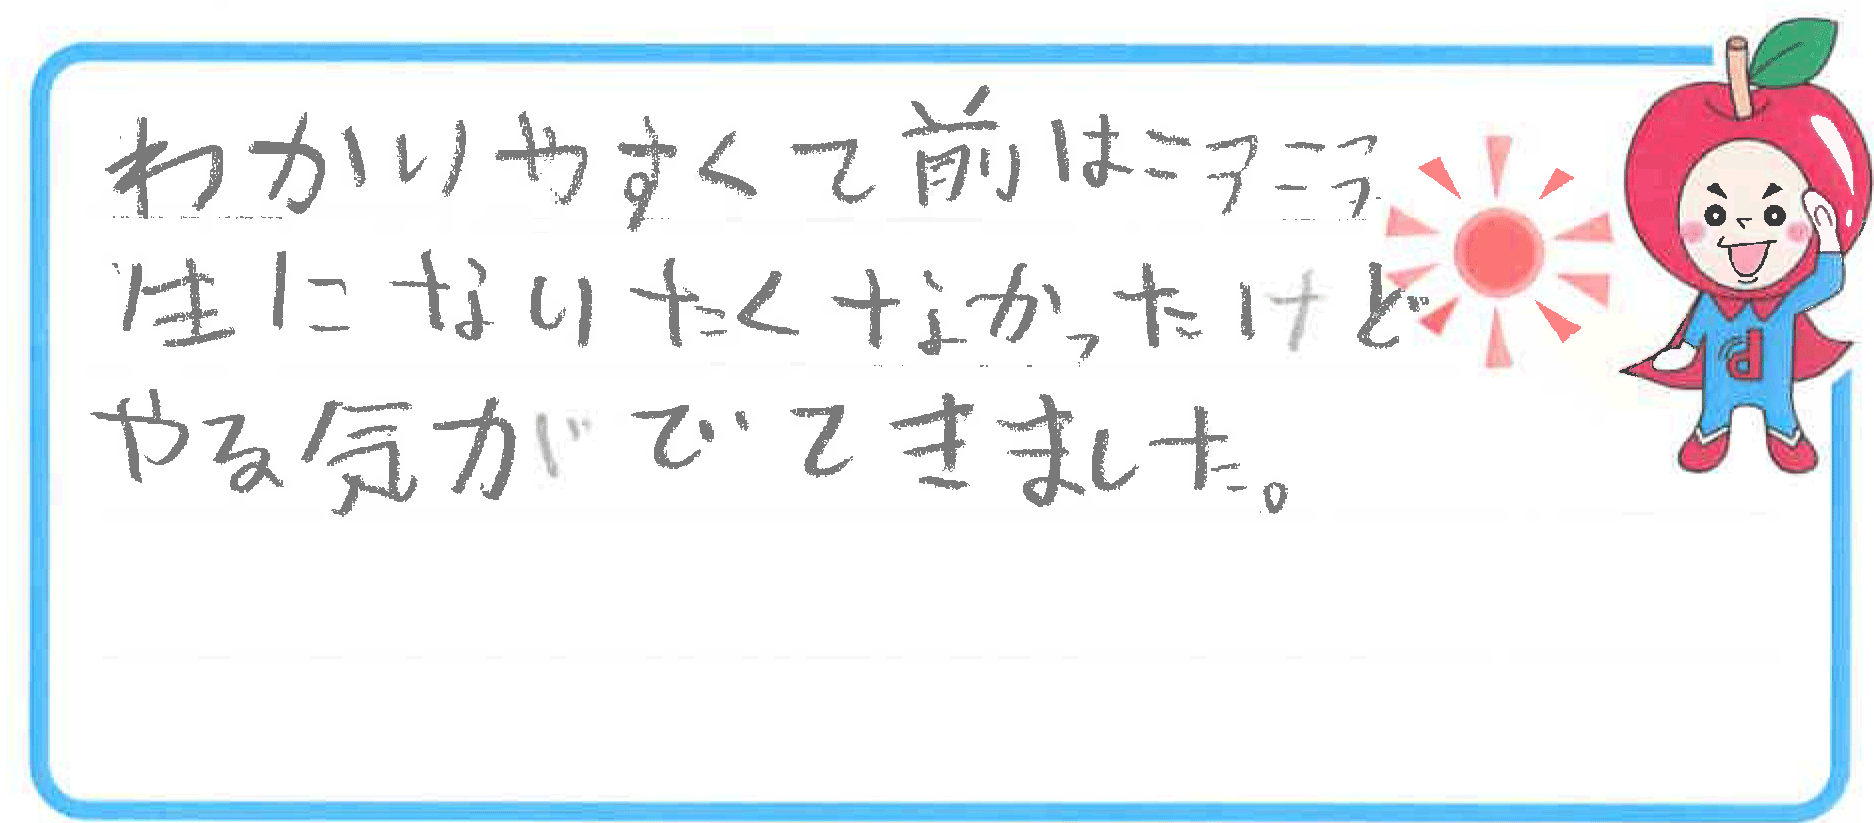 わかりやすくて前はニヌニヌ
生になりたくなかったけど
やる気がでてきました。
P